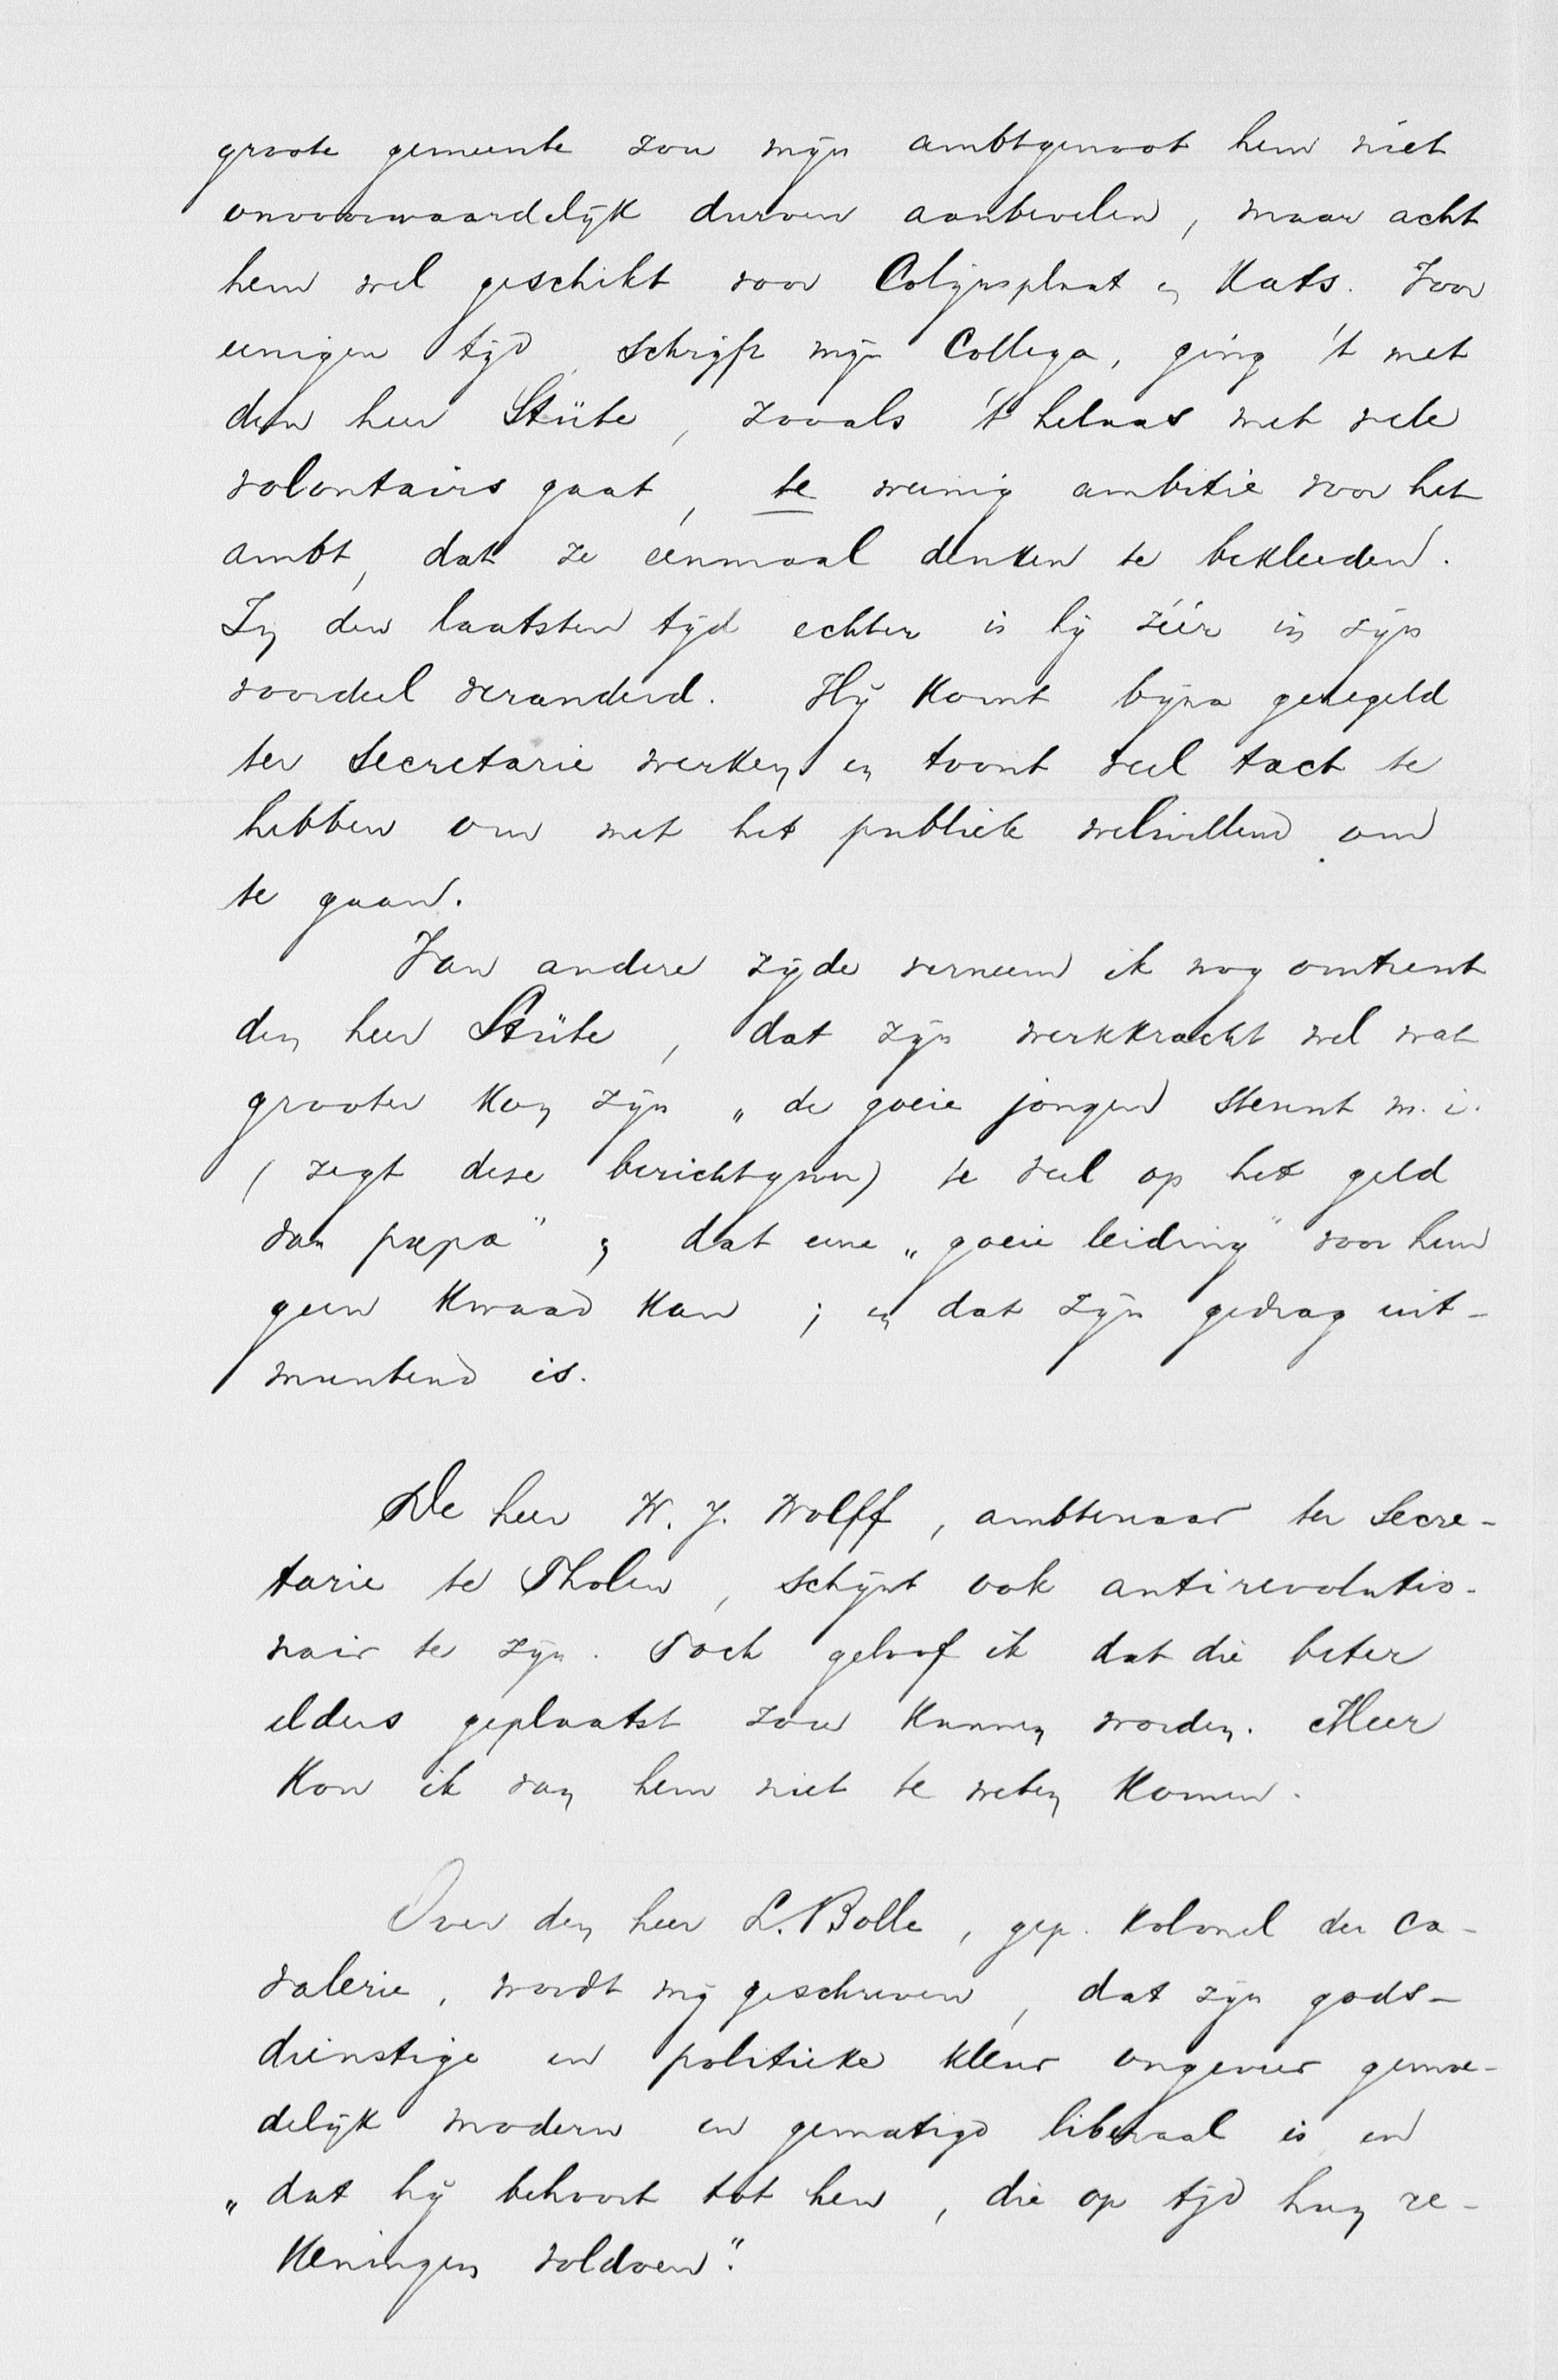 groote gemeente zou mijn ambtgenoot hem niet
onvoorwaardelijk durven aanbevelen, maar acht
hem wel geschikt voor Colijnsplaat en Kats. Voor
eenigen tijd, schrijft mijn Collega, ging 't met
den heer Stübe, zooals 't helaas met vele
volontairs gaat, te weinig ambitie voor het
ambt, dat ze éénmaal denken te bekleeden.
In den laatsten tijd echter is hij zéér in zijn
voordeel veranderd. Hij komt bijna geregeld
ter Secretarie werken en toont veel tact te
hebben om met het publiek welwillend om
te gaan.
Van andere zijde verneem ik nog omtrent
den heer Stübe, dat zijn werkkracht wel wat
grooter kon zijn „de goeie jongen steunt m.i.
(zegt deze berichtgever) te veel op het geld
van papa"; dat eene „goeie leiding" voor hem
geen kwaad kan; en dat zijn gedrag uit-
muntend is.
De heer W. J. Wolff, ambtenaar ter Secre-
tarie te Tholen, schijnt ook antirevolutio-
nair te zijn. Toch geloof ik dat die beter
elders geplaatst zou kunnen worden. Meer
kon ik van hem niet te weten komen.
Over den heer L. Bolle, gep. kolonel der ca-
valerie, wordt mij geschreven, dat zijn gods-
dienstige en politieke kleur ongeveer gemoe-
delijk modern en gematigd liberaal is en
„dat hij behoort tot hen, die op tijd hun re-
keningen voldoen".